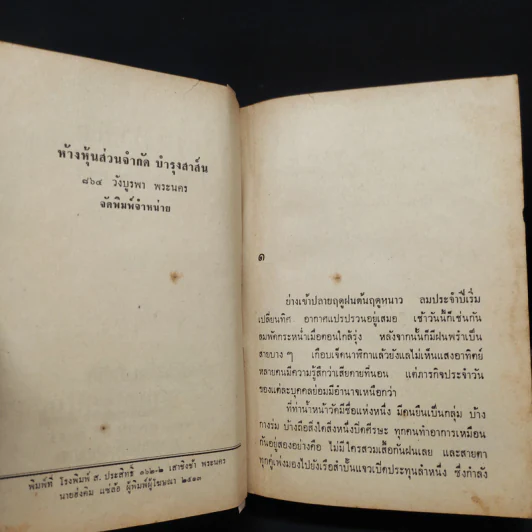 ห้างหุ้นส่วนจำกัด บำรุงสาส์น
๘๖๔ วังบูรพา พระนคร
จัดพิมพ์จำหน่าย
พิมพ์ที่ โรงพิมพ์ ส. ประสิทธิ์ ๑๖๒-๒ เสาชิงช้า พระนคร
ผู้พิมพ์ผู้โฆษณา ๒๕๑๓
๑
ย่างเข้าปลายฤดูฝนต้นฤดูหนาว ลมประจำปีเริ่ม
เปลี่ยนทิศ อากาศแปรปรวนอยู่เสมอ เช้าวันนี้ก็เช่นกัน
ลมพัดกระหน่ำเมื่อตอนใกล้รุ่ง หลังจากนั้นก็มีฝนพรำเป็น
สายบาง ๆ เกือบเจ็ดนาฬิกาแล้วยังแลไม่เห็นแสงอาทิตย์
หลายคนมีความรู้สึกว่าเสียดายที่นอน แต่ภารกิจประจำวัน
ของแต่ละบุคคลย่อมมีอำนาจเหนือกว่า
ที่ท่าน้ำหน้าวัดมีชื่อแห่งหนึ่ง มีคนยืนเป็นกลุ่ม บ้าง
กางร่ม บ้างถือสิ่งใดสิ่งหนึ่งปิดศีรษะ ทุกคนทำอาการเหมือน
กันอยู่สองอย่างคือ ไม่มีใครสวมเสื้อกันฝนเลย และสายตา
ทุกคู่เพ่งมองไปยังเรือสำปั้นแจวเปิดประทุนลำหนึ่ง ซึ่งกำลัง